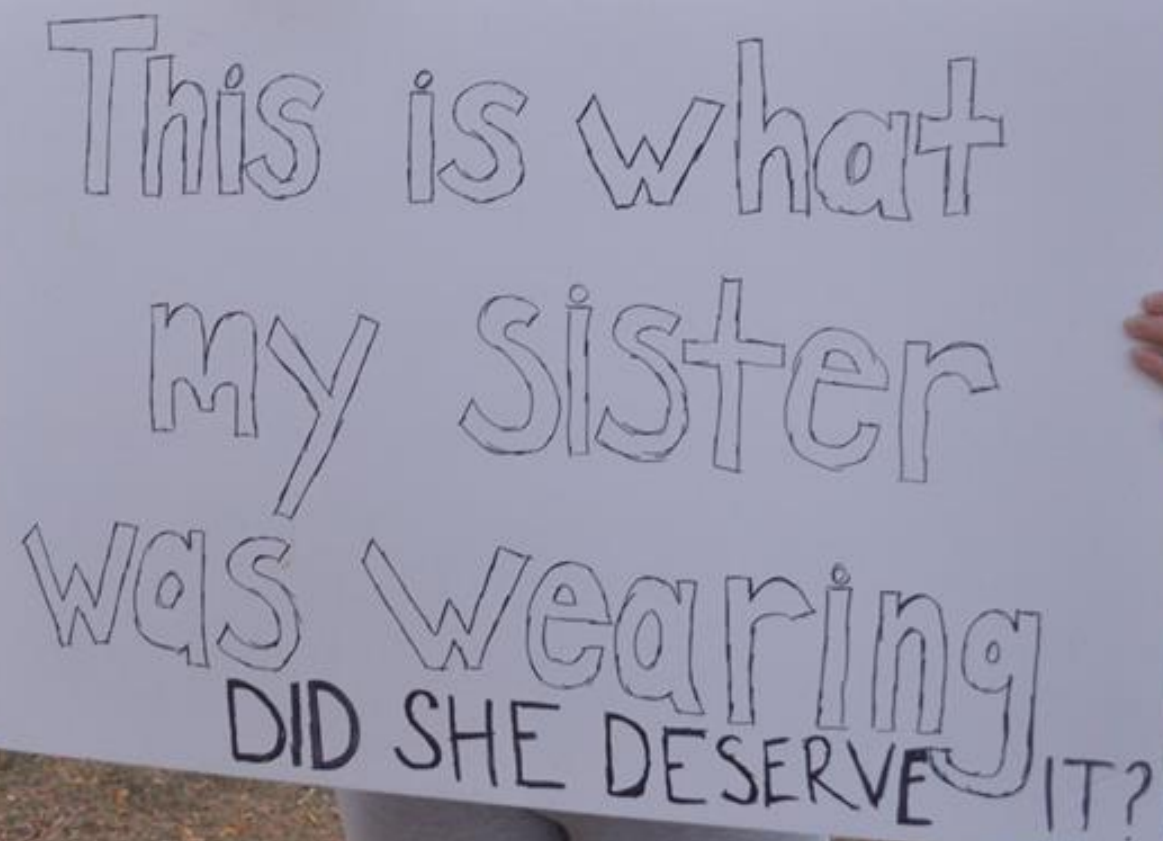 This is what
my sister
was wearing
DID SHE DESERVE IT?